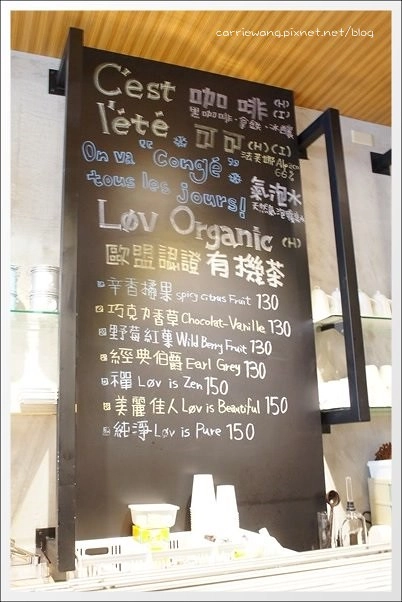 carriewang.pixnet.net/blog
C'est 咖啡 (H)(I)
黑咖啡、拿鐵、冰釀
l'été 可可 (H)(I)
法芙娜
66%
On va "congé"
tous les jours!
氣泡水
天然氣泡
Løv Organic (H)
歐盟認證有機茶
辛香橘果 spicy citrus Fruit 130
巧克力香草 Chocolat-Vanille 130
野莓紅菓 Wild Berry Fruit 130
經典伯爵 Earl Grey 130
禪 Løv is Zen 150
美麗佳人 Løv is Beautiful 150
純淨 Løv is Pure 150